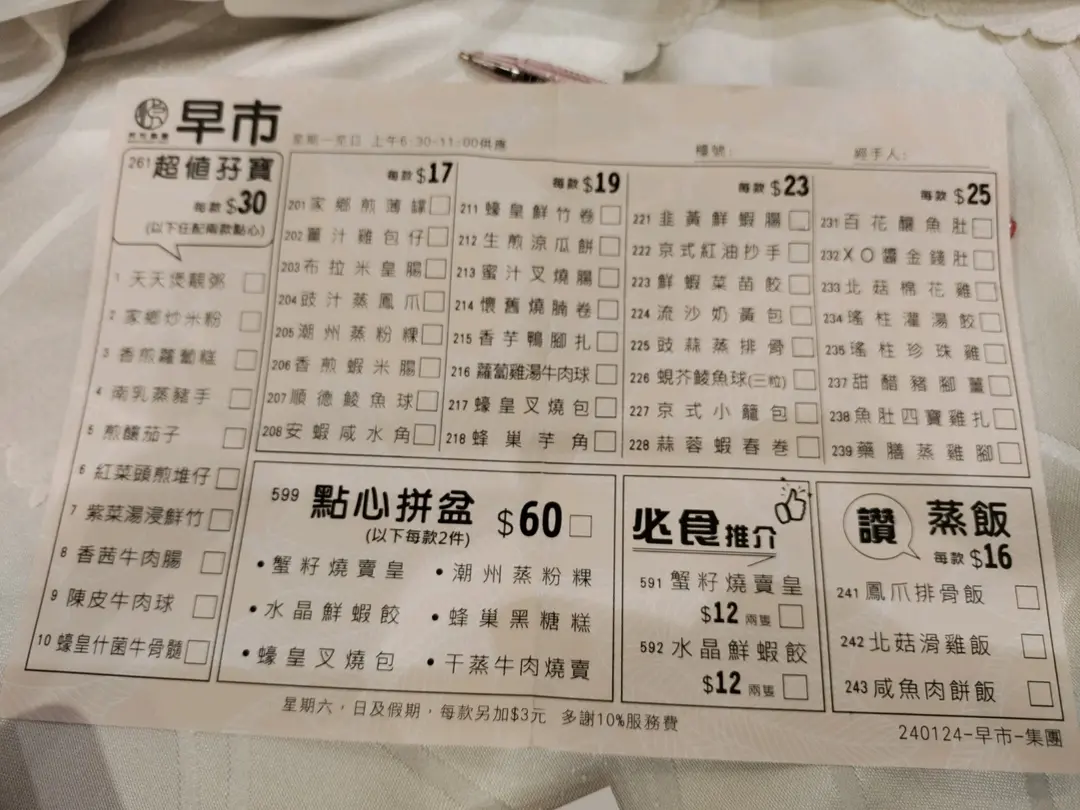 早市
星期一至日 上午6:30-11:00供應
檯號:
經手人:
261超值孖寶
每款$30
(以下任配兩款點心)
1 天天煲靚粥
2 家鄉炒米粉
3 香煎蘿蔔糕
4 南乳蒸豬手
5 煎釀茄子
6 紅菜頭煎堆仔
7 紫菜湯浸鮮竹
8 香茜牛肉腸
9 陳皮牛肉球
10 蠔皇什菌牛骨髓
每款$17
201家鄉煎薄罉
202薑汁雞包仔
203布拉米皇腸
204豉汁蒸鳳爪
205潮州蒸粉粿
206香煎蝦米腸
207順德鯪魚球
208安蝦咸水角
每款$19
211蠔皇鮮竹卷
212生煎涼瓜餅
213蜜汁叉燒腸
214懷舊燒腩卷
215香芋鴨腳扎
216蘿蔔雞湯牛肉球
217蠔皇叉燒包
218蜂巢芋角
每款$23
221韭黃鮮蝦腸
222京式紅油抄手
223鮮蝦菜苗餃
224流沙奶黃包
225豉蒜蒸排骨
226蜆芥鯪魚球(三粒)
227京式小籠包
228蒜蓉蝦春卷
每款$25
231百花釀魚肚
232XO醬金錢肚
233北菇棉花雞
234瑤柱灌湯餃
235瑤柱珍珠雞
237甜醋豬腳薑
238魚肚四寶雞扎
239藥膳蒸雞腳
599 點心拼盆 $60
(以下每款2件)
•蟹籽燒賣皇
•潮州蒸粉粿
•水晶鮮蝦餃
•蜂巢黑糖糕
•蠔皇叉燒包
•干蒸牛肉燒賣
必食推介
591 蟹籽燒賣皇
$12 兩隻
592 水晶鮮蝦餃
$12 兩隻
讚 蒸飯
每款$16
241鳳爪排骨飯
242北菇滑雞飯
243咸魚肉餅飯
星期六，日及假期，每款另加$3元 多謝10%服務費
240124-早市-集團